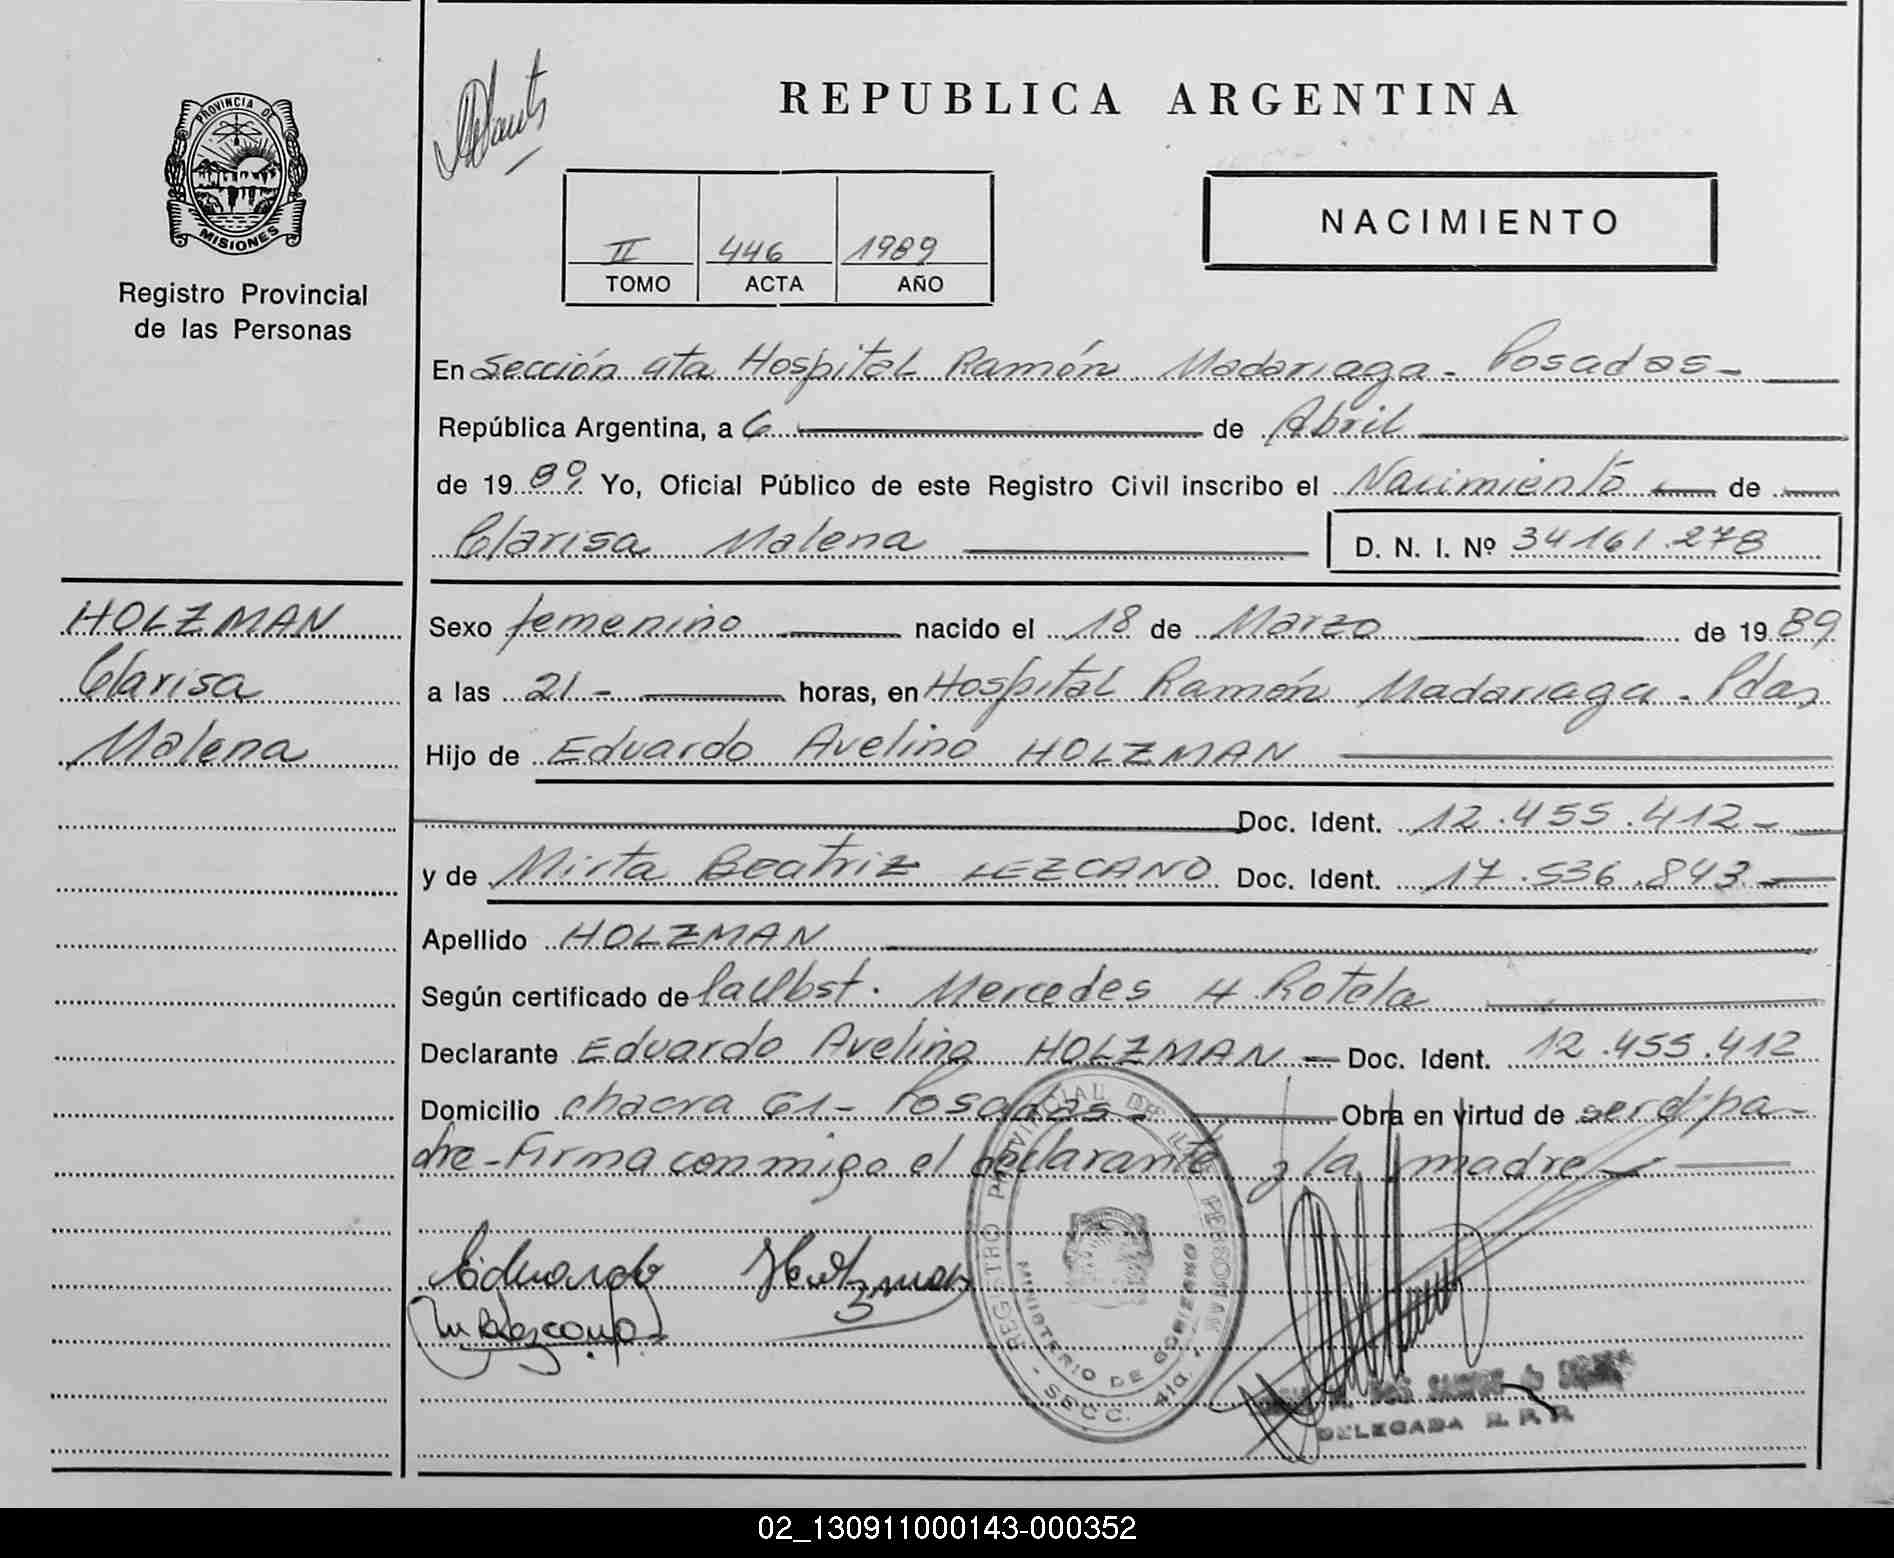 PROVINCIA DE
MISIONES
Registro Provincial
de las Personas
REPUBLICA ARGENTINA
NACIMIENTO
II 446 1989
TOMO ACTA AÑO
En Sección 4ta Hospital Ramón Madariaga - Posadas -
República Argentina, a 6 de Abril
de 19 89 Yo, Oficial Público de este Registro Civil inscribo el Nacimiento de
Clarisa Malena D. N. I. Nº 34161.278
HOLZMAN
Clarisa
Malena
Sexo femenino nacido el 18 de Marzo de 19 89
a las 21 - horas, en Hospital Ramón Madariaga - Pdas
Hijo de Eduardo Avelino HOLZMAN
Doc. Ident. 12.455.412 -
y de Mirta Beatriz LEZCANO Doc. Ident. 17.536.843 -
Apellido HOLZMAN
Según certificado de Obst. Mercedes H Rotela
Declarante Eduardo Avelino HOLZMAN - Doc. Ident. 12.455.412
Domicilio chacra 61 - Posadas - Obra en virtud de ser el pa-
dre - Firma conmigo el declarante y la madre
Eduardo Holzman
REGISTRO PROVINCIAL DE LAS PERSONAS
MINISTERIO DE GOBIERNO
- SECC. 4ta.
DOS SANTOS de
DELEGADA R. P. P.
02_130911000143-000352